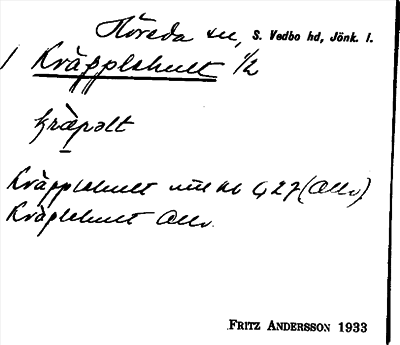 Höreda sn, S. Vedbo hd, Jönk. l.
1 Kräpplehult 1/2
kræpolt
Kräpplehult 
Kräplehult
FRITZ ANDERSSON 1933